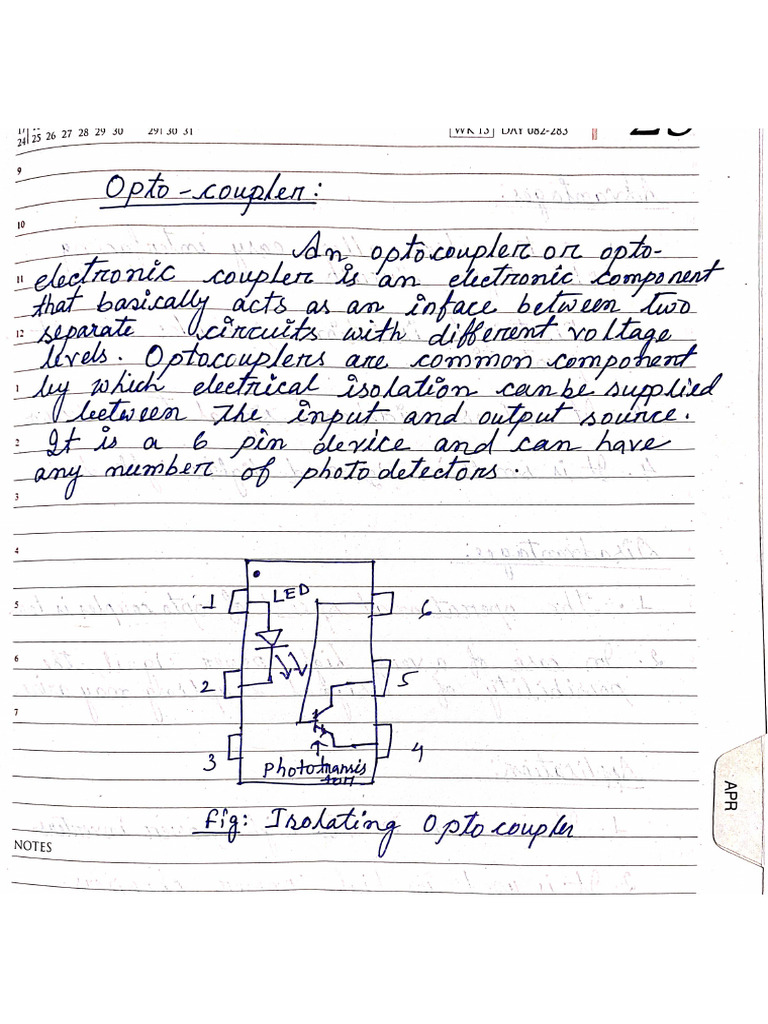 24 25 26 27 28 29 30 29 30 31 WK 13 DAY 082-283
9
Opto-coupler:
10
An optocoupler or opto-
11 electronic coupler is an electronic component
that basically acts as an inface between two
12 separate circuits with different voltage
levels. Optocouplers are common component
1 by which electrical isolation can be supplied
between the input and output source.
2 It is a 6 pin device and can have
any number of photodetectors.
3
4
5
6
7
LED
1
6
2
5
3
4
phototransis
tor
fig: Isolating Optocoupler
NOTES
APR